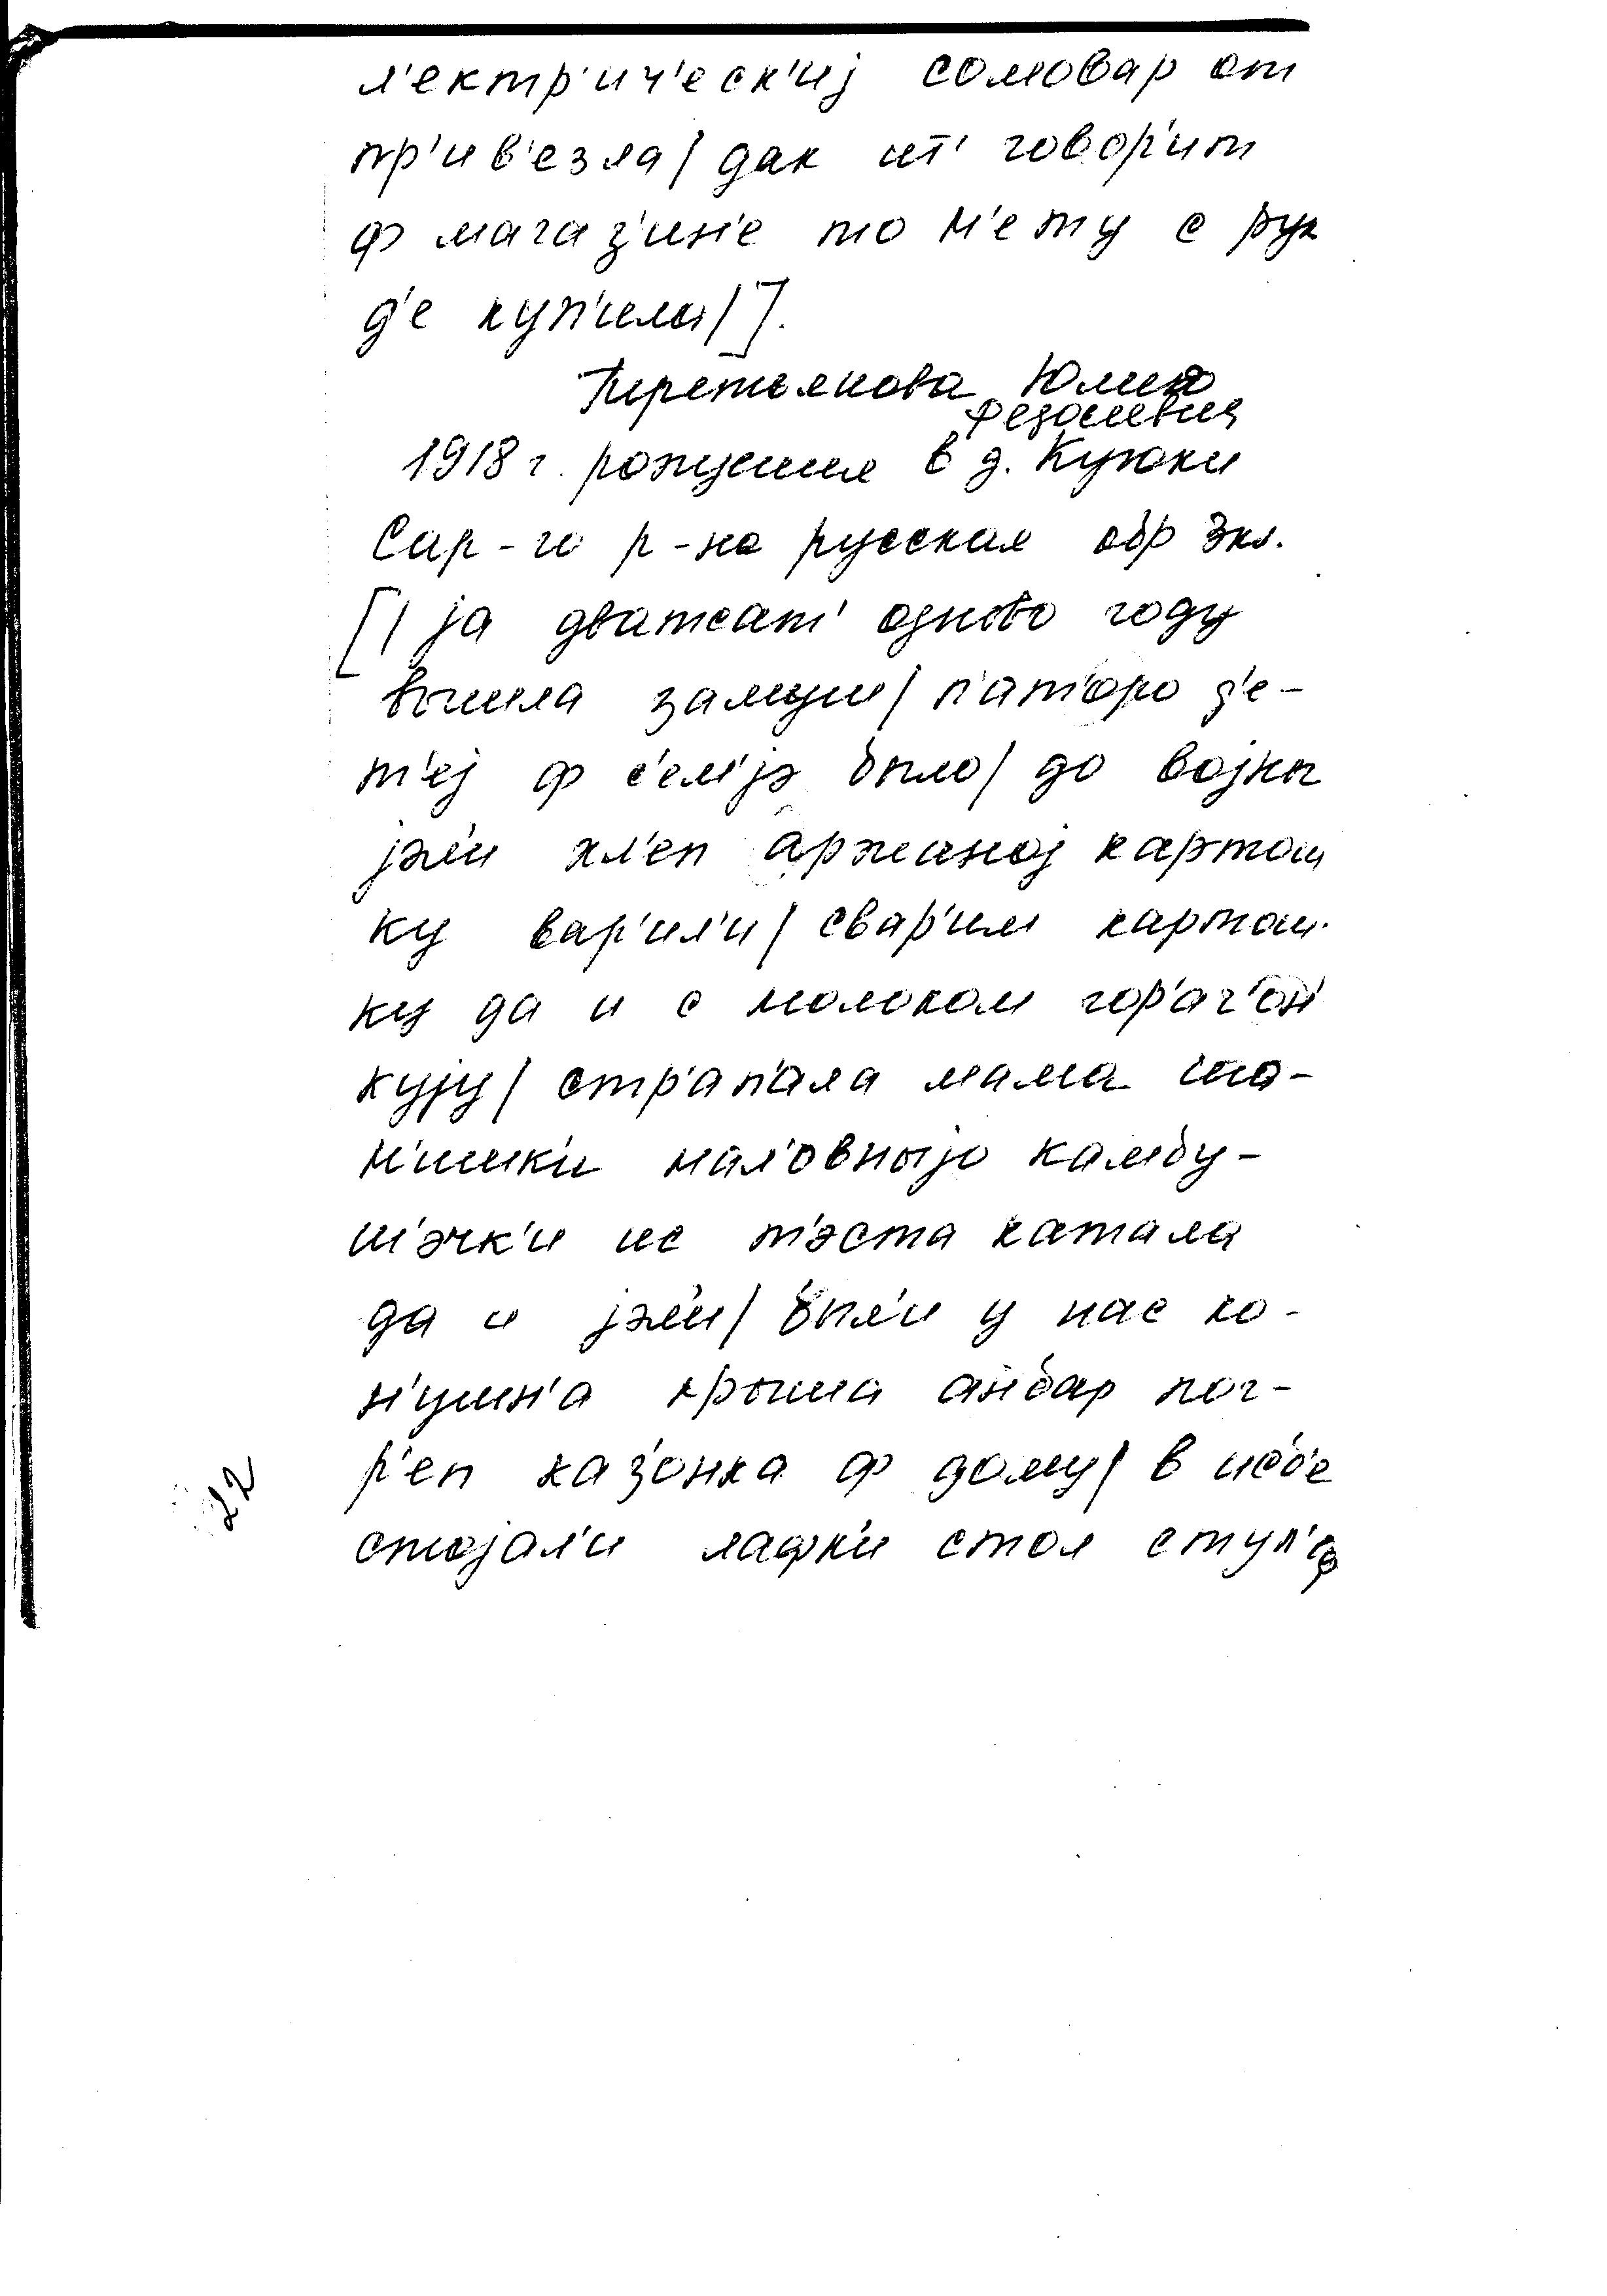 л'ектр'ич'еск'иj сомовар от
пр'ив'езла/ дак ит' говор'ит
ф магаз'ин'е то н'ету с рук
д'е куп'ила/].
Юлия
1918 г. рождения в д.
Сар-го р-на русская обр 3кл.
[/ jа дватсат' одново году
вышла замуш/ п'ат'оро д'е-
т'еj ф с'ем'jэ было/ до воjны
jэл'и хл'еп аржаноj картош
ку вар'ил'и/ свар'им картош-
ку да и с молоком гор'ач'он'
куjу/ стр'ап'ала мама ша-
н'ишк'и нал'овныjо камбу-
ш'эчк'и ис т'эста катала
да и jэл'и/ был'и у нас ко-
н'ушн'а крыша анбар пог-
р'еп каз'онка ф дому/ в исб'е
стоjал'и лафк'и стол стул'jа
22